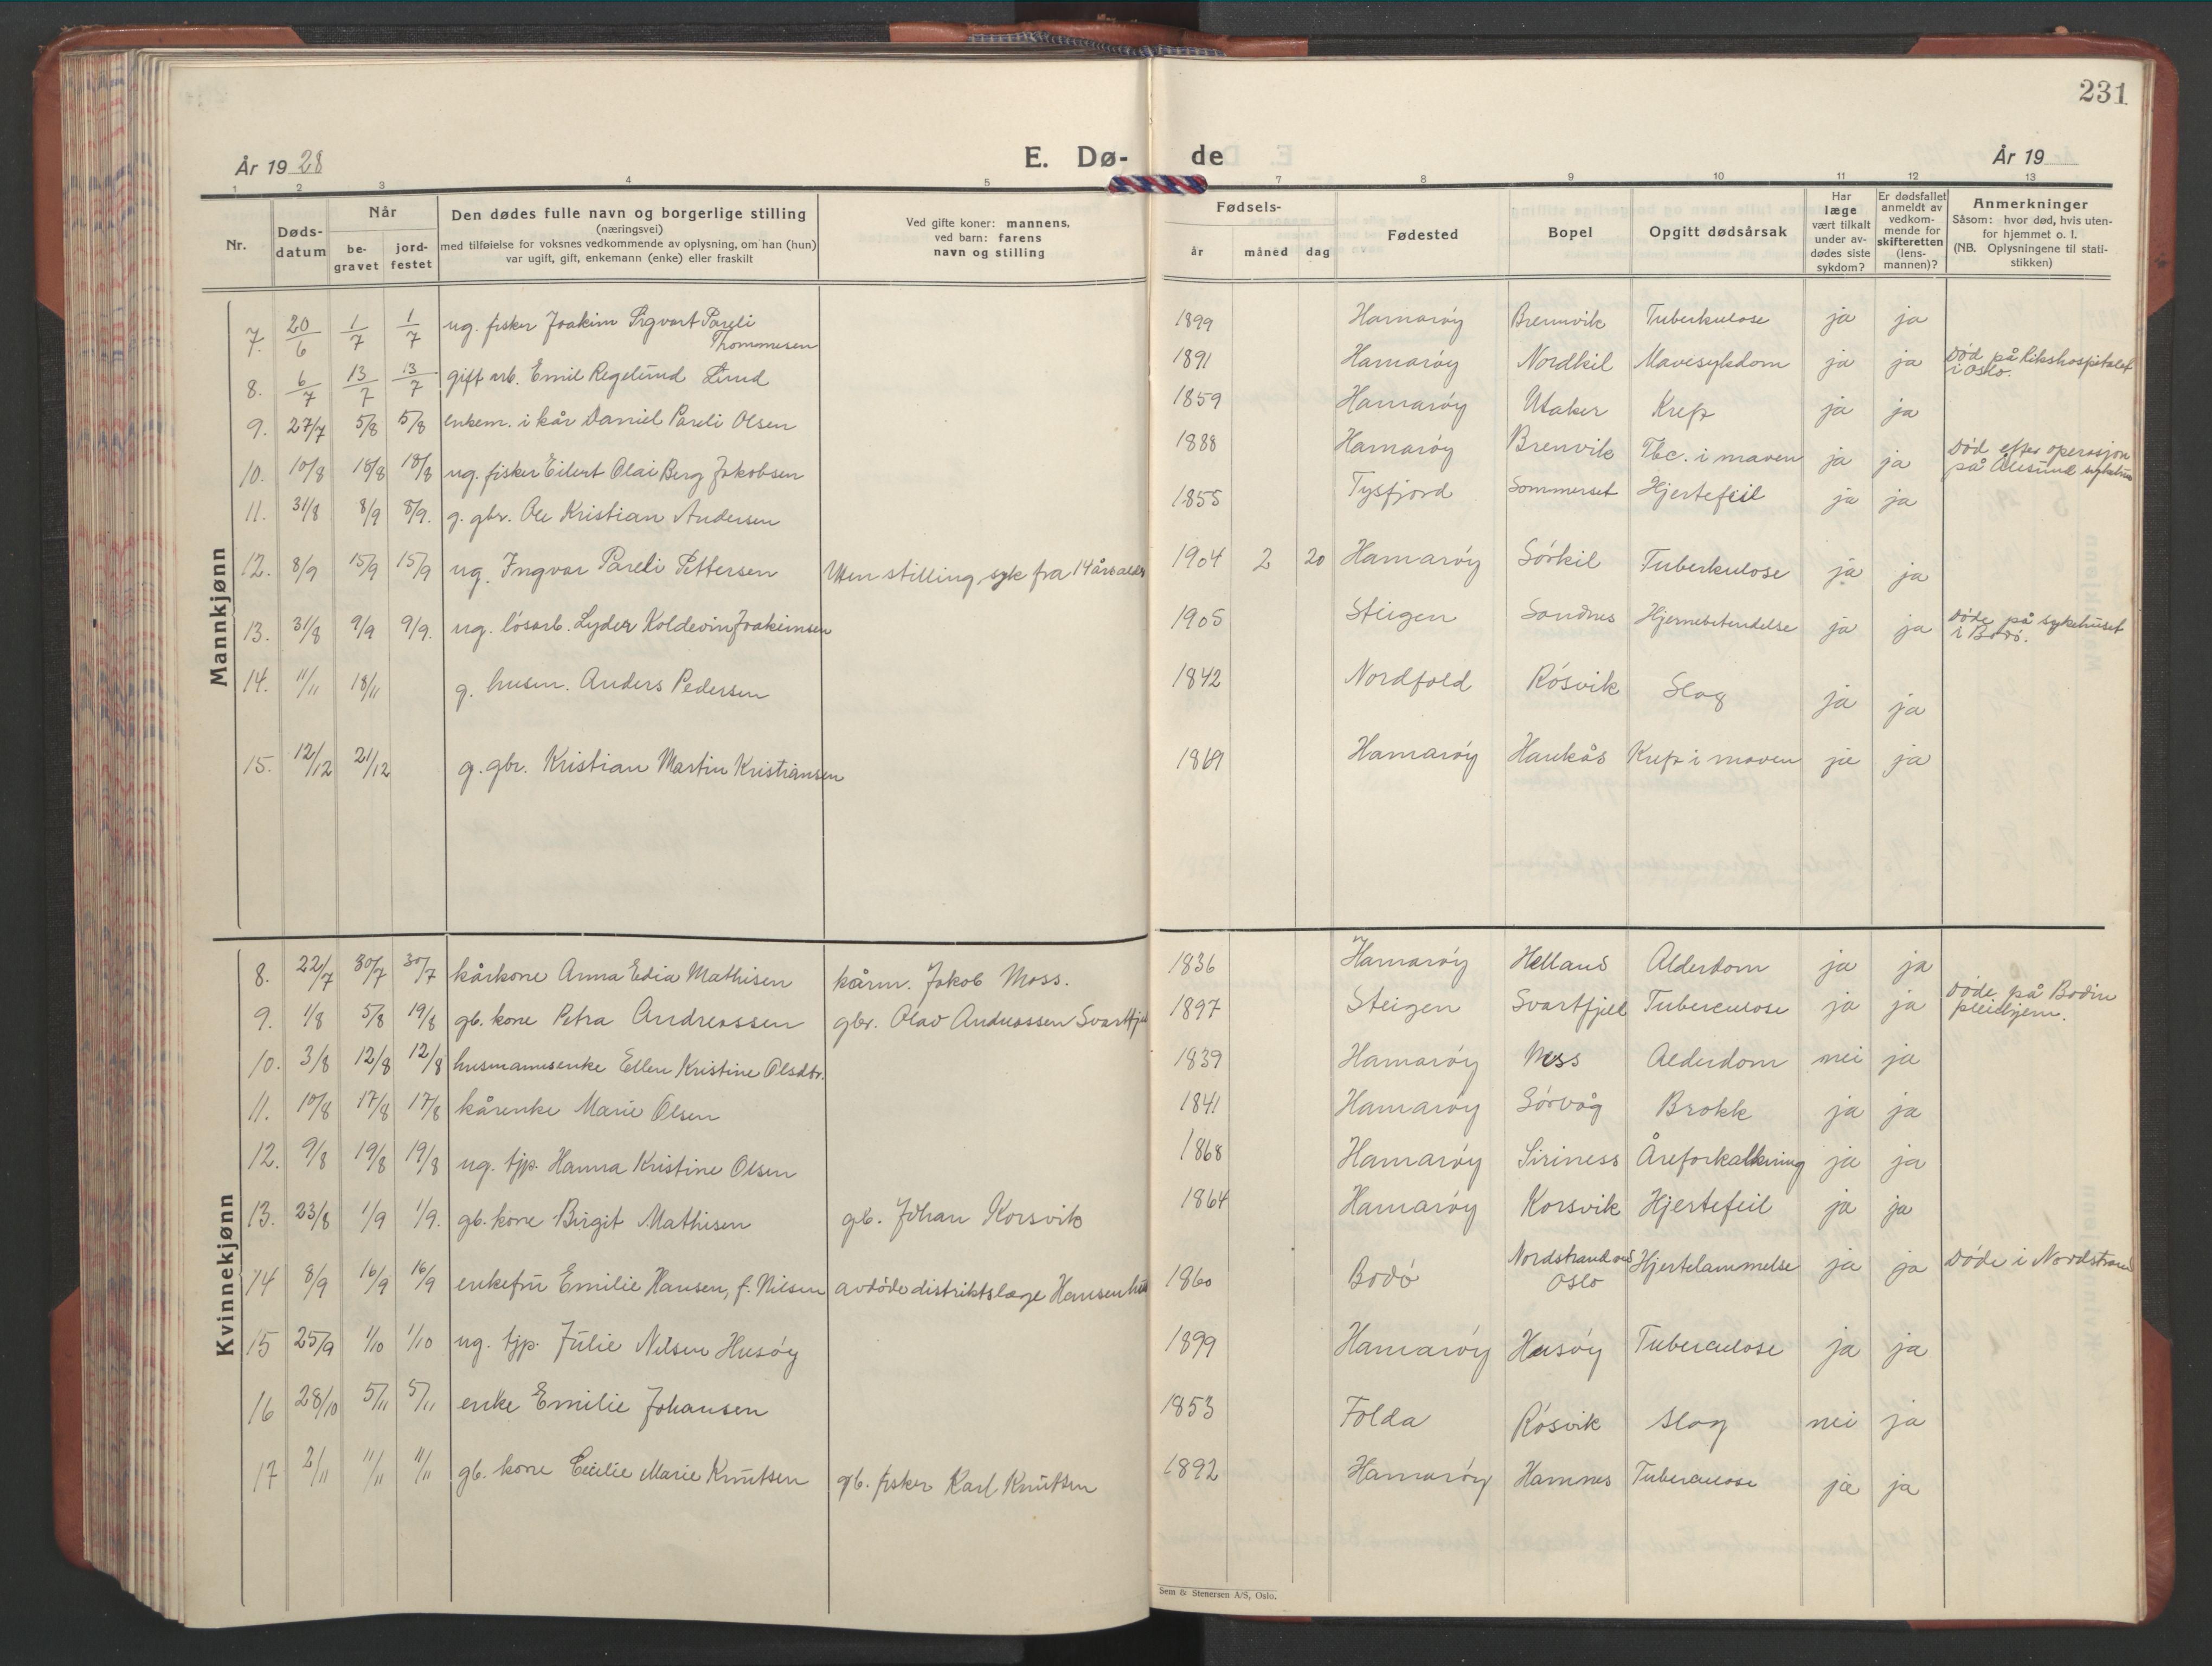 231
År 1928
E. Dø-
de
År 19
1 2 3 4 5 7 8 9 10 11 12 13
Nr.
Døds-
datum
Når
be-
gravet
jord-
festet
Den dødes fulle navn og borgerlige stilling
(næringsvei)
med tilføielse for voksnes vedkommende av oplysning, om han (hun)
var ugift, gift, enkemann (enke) eller fraskilt
Ved gifte koner: mannens,
ved barn: farens
navn og stilling
Fødsels-
år måned dag
Fødested
Bopel
Opgitt dødsårsak
Har
læge
vært tilkalt
under av-
dødes siste
sykdom?
Er dødsfallet
anmeldt av
vedkom-
mende for
skifteretten
(lens-
mannen)?
Anmerkninger
Såsom: hvor død, hvis uten-
for hjemmet o. l.
(NB. Oplysningene til stati-
stikken)
Mannkjønn
7. 20/6 1/7 1/7 ug. fisker Joakim Sigvart Pareli
Thommesen 1899 Hamarøy Brennvik Tuberkulose ja ja
8. 6/7 13/7 13/7 gift arb. Emil Regelund Lund 1891 Hamarøy Nordkil Mavesykdom ja ja Død på Rikshospitalet
i Oslo.
9. 27/7 5/8 5/8 enkem. i kår Daniel Pareli Olsen 1859 Hamarøy Utaker Kreft ja ja
10. 10/8 18/8 18/8 ug. fisker Eilert Olai Berg Jakobsen 1888 Hamarøy Brenvik Tbc. i maven ja ja Død efter operasjon
på Ålesund sykehus
11. 31/8 8/9 8/9. g. gbr. Ole Kristian Andersen 1855 Tysfjord Sommerset Hjertefeil ja ja
12. 8/9 15/9 15/9 ug. Ingvar Pareli Pettersen Uten stilling, syk fra 14 års alder 1904 2 20 Hamarøy Sørkil Tuberkulose ja ja
13. 31/8 9/9 9/9. ug. løsarb. Lyder Koldevin Joakimsen 1905 Steigen Sandnes Hjernebetendelse ja ja Døde på sykehuset
i Bodø.
14. 11/11 18/11 g. husm. Anders Pedersen 1842 Nordfold Røsvik Slag ja ja
15. 12/12 21/12 g. gbr. Kristian Martin Kristiansen 1869 Hamarøy Haukås Kreft i maven ja ja
Kvinnekjønn
8. 22/7 30/7 30/7 kårkone Anna Edia Mathisen kårm. Jakob Moss. 1836 Hamarøy Helland Alderdom ja ja
9. 1/8 5/8 19/8 gb. kone Petra Andreassen gbr. Olav Andreassen Svartfjell 1897 Steigen Svartfjell Tuberculose ja ja Døde på Bodin
pleiehjem.
10. 3/8 12/8 12/8 husmannsenke Ellen Kristine Olsdtr. 1839 Hamarøy Ness Alderdom nei ja
11. 10/8 17/8 17/8 kårenke Marie Olsen 1841 Hamarøy Sørvåg Brokk ja ja
12. 9/8 19/8 19/8 ug. tjp. Hanna Kristine Olsen 1868 Hamarøy Siriness Åreforkalkning ja ja
13. 23/8 1/9 1/9. gb. kone Birgit Mathisen gb. Johan Korsvik 1864 Hamarøy Korsvik Hjertefeil ja ja
14 8/9 16/9 16/9 enkefru Emilie Hansen, f. Nilsen avdøde distriktslæge Hansen 1860 Bodø Nordstrand ved
Oslo Hjertelammelse ja ja Døde i Nordstrand
15 25/9 1/10 1/10 ug. tjp. Julie Nilsen Husøy 1899 Hamarøy Husøy Tuberculose ja ja
16 28/10 5/11 5/11 enke Emilie Johansen 1853 Folda Røsvik Slag nei ja
17 2/11 11/11 11/11 gb. kone Cecilie Marie Knutsen gb. fisker Karl Knutsen 1892 Hamarøy Hamnes Tuberculose ja ja
Sem & Stenersen A/S, Oslo.